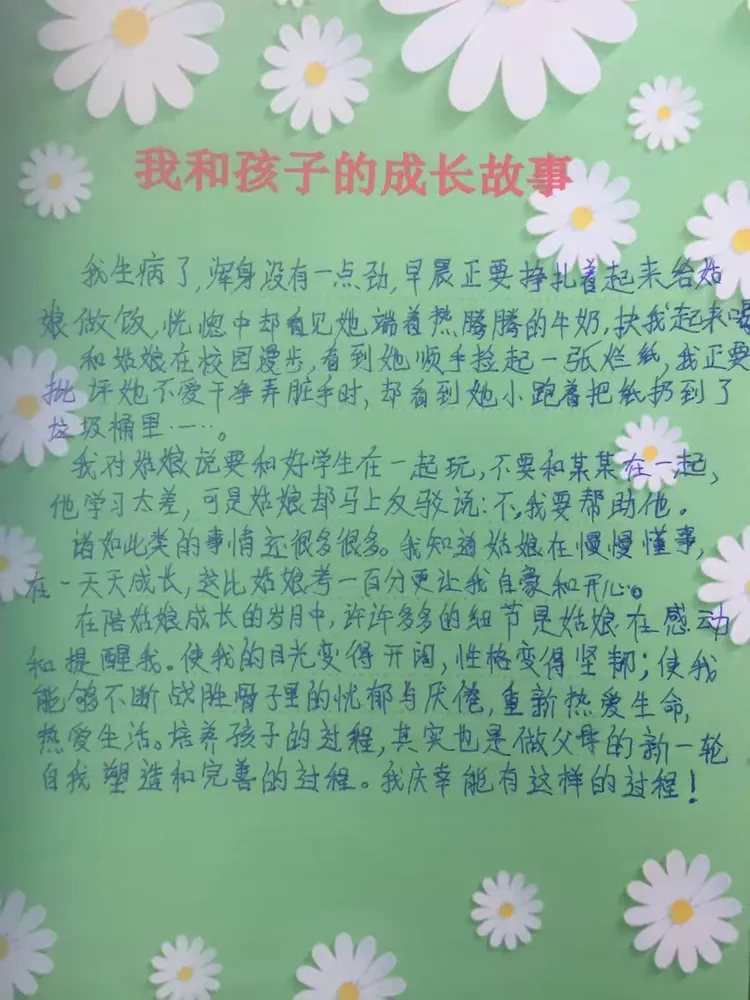 我和孩子的成长故事
我生病了,浑身没有一点劲,早晨正要挣扎着起来给姑
娘做饭,恍惚中却看见她端着热腾腾的牛奶,扶我起来喝
和姑娘在校园漫步,看到她顺手捡起一张烂纸,我正要
批评她不爱干净弄脏手时,却看到她小跑着把纸扔到了
垃圾桶里……。
我对姑娘说要和好学生在一起玩,不要和某某在一起,
他学习太差,可是姑娘却马上反驳说:不,我要帮助他。
诸如此类的事情还很多很多。我知道姑娘在慢慢懂事,
在一天天成长,这比姑娘考一百分更让我自豪和开心。
在陪姑娘成长的岁月中,许许多多的细节是姑娘在感动
和提醒我。使我的目光变得开阔,性格变得坚韧;使我
能够不断战胜骨子里的忧郁与厌倦,重新热爱生命,
热爱生活。培养孩子的过程,其实也是做父母的新一轮
自我塑造和完善的过程。我庆幸能有这样的过程!